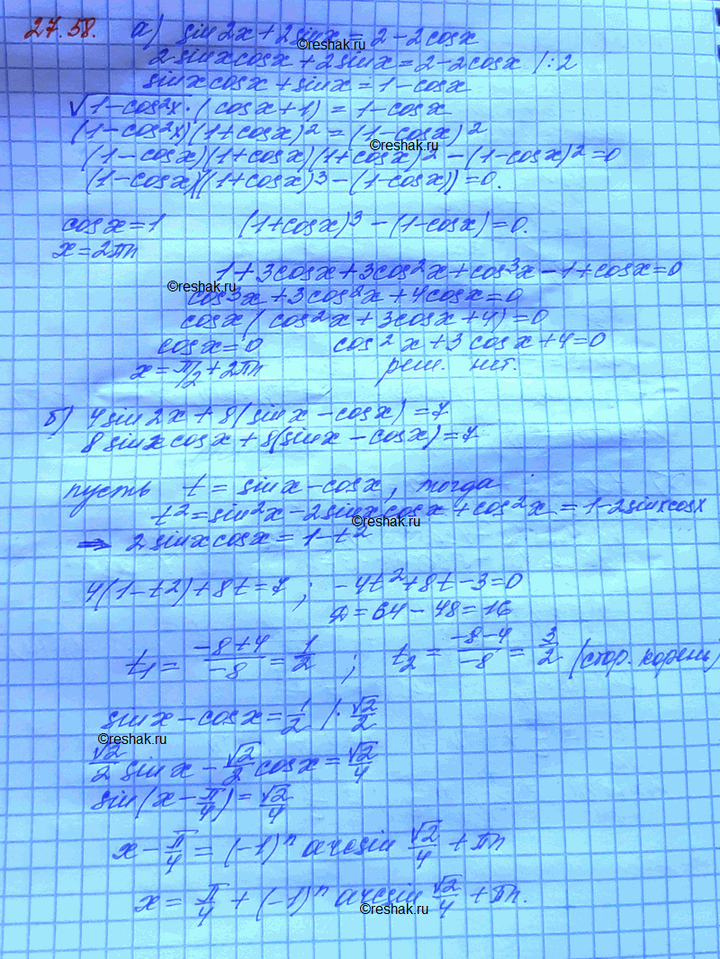 27.58. а) sin2x + 2sinx = 2 - 2cosx
©reshak.ru
2sinxcosx + 2sinx = 2 - 2cosx /:2
sinxcosx + sinx = 1 - cosx
√(1-cos²x) · (cosx+1) = 1 - cosx
(1-cos²x)(1+cosx)² = (1-cosx)²
©reshak.ru
(1-cosx)(1+cosx)(1+cosx)² - (1-cosx)² = 0
(1-cosx)((1+cosx)³ - (1-cosx)) = 0.
cosx = 1 (1+cosx)³ - (1-cosx) = 0.
x = 2πn
1 + 3cosx + 3cos²x + cos³x - 1 + cosx = 0
©reshak.ru
cos³x + 3cos²x + 4cosx = 0
cosx (cos²x + 3cosx + 4) = 0
cosx = 0 cos²x + 3cosx + 4 = 0
x = π/2 + 2πn реш. нет.
б) 4sin2x + 8(sinx - cosx) = 7
8sinxcosx + 8(sinx - cosx) = 7
пусть t = sinx - cosx, тогда
t² = sin²x - 2sinxcosx + cos²x = 1 - 2sinxcosx
©reshak.ru
⇒ 2sinxcosx = 1 - t²
4(1-t²) + 8t = 7 ; -4t² + 8t - 3 = 0
D = 64 - 48 = 16
t₁ = (-8+4)/(-8) = 1/2 ; t₂ = (-8-4)/(-8) = 3/2 (стор. корень)
sinx - cosx = 1/2 /· √2/2
©reshak.ru
√2/2 sinx - √2/2 cosx = √2/4
sin(x - π/4) = √2/4
x - π/4 = (-1)ⁿ arcsin √2/4 + πn
x = π/4 + (-1)ⁿ arcsin √2/4 + πn.
©reshak.ru